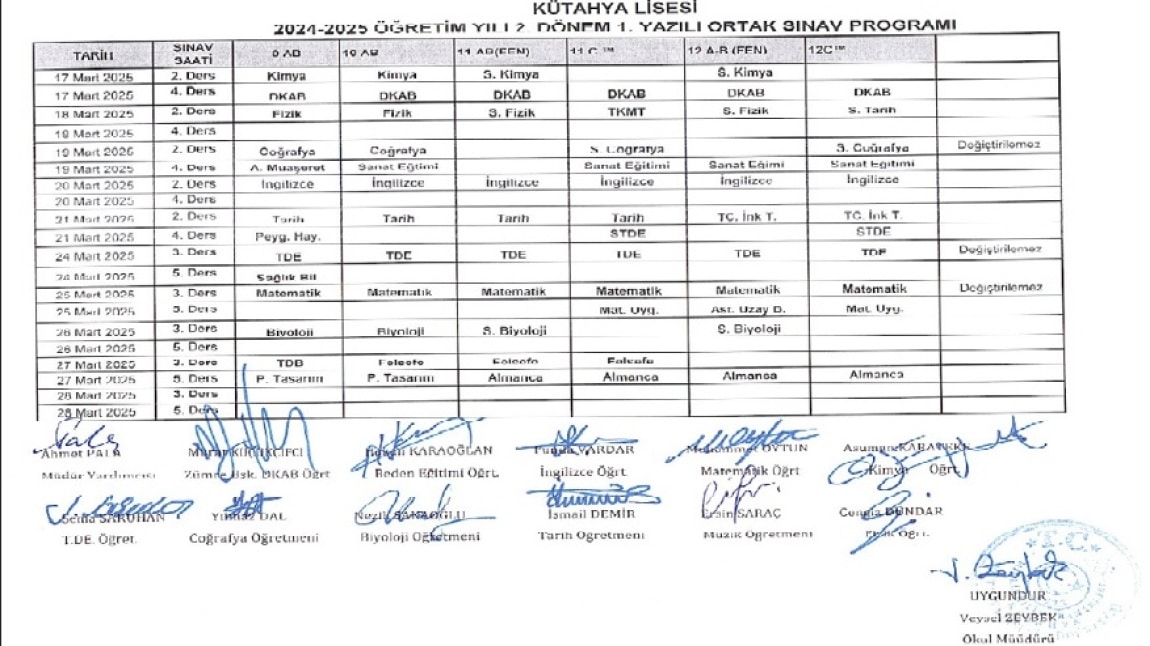 KÜTAHYA LİSESİ
2024-2025 ÖĞRETİM YILI 2. DÖNEM 1. YAZILI ORTAK SINAV PROGRAMI
TARİH SINAV SAATİ 9 AB 10 AB 11 AB(FEN) 11 C ™ 12 A-B (FEN) 12C™
17 Mart 2025 2. Ders Kimya Kimya S. Kimya S. Kimya
17 Mart 2025 4. Ders DKAB DKAB DKAB DKAB DKAB DKAB
18 Mart 2025 2. Ders Fizik Fizik S. Fizik TKMT S. Fizik S. Tarih
19 Mart 2025 4. Ders
19 Mart 2025 2. Ders Coğrafya Coğrafya S. Coğrafya S. Coğrafya Değiştirilemez
19 Mart 2025 4. Ders A. Muaşeret Sanat Eğtimi Sanat Eğitimi Sanat Eğimi Sanat Egitimi
20 Mart 2025 2. Ders İngilizce İngilizce İngilizce İngilizce İngilizce İngilizce
20 Mart 2025 4. Ders
21 Mart 2025 2. Ders Tarih Tarih Tarih Tarih TC. İnk T. TC. İnk T.
21 Mart 2025 4. Ders Peyg. Hay. STDE STDE
24 Mart 2025 3. Ders TDE TDE TDE TDE TDE TDE Değiştirilemez
24 Mart 2025 5. Ders Sağlık Bil
25 Mart 2025 3. Ders Matematik Matematik Matematik Matematik Matematik Matematik Değiştirilemez
25 Mart 2025 5. Ders Mat. Uyg. Ast. Uzay B. Mat. Uyg.
26 Mart 2025 3. Ders Biyoloji Biyoloji S. Biyoloji S. Biyoloji
26 Mart 2025 5. Ders
27 Mart 2025 3. Ders TDB Felsefe Felsefe Felsefe
27 Mart 2025 5. Ders P. Tasarım P. Tasarım Almanca Almanca Almanca Almanca
28 Mart 2025 3. Ders
28 Mart 2025 5. Ders
Ahmet PALA KARAOĞLAN VARDAR
Müdür Yardımcısı Zümre Bşk. DKAB Öğrt Beden Eğitimi Öğrt. İngilizce Öğrt. Matematik Öğrt Kimya Öğrt.
SARUHAN DAL İsmail DEMİR SARAÇ Cengiz DÜNDAR
T.DE. Öğret. Coğrafya Öğretmeni Biyoloji Öğretmeni Tarih Öğretmeni Müzik Öğretmeni Öğrt.
T.C.
UYGUNDUR
Veysel ZEYBEK
Okul Müüdürü